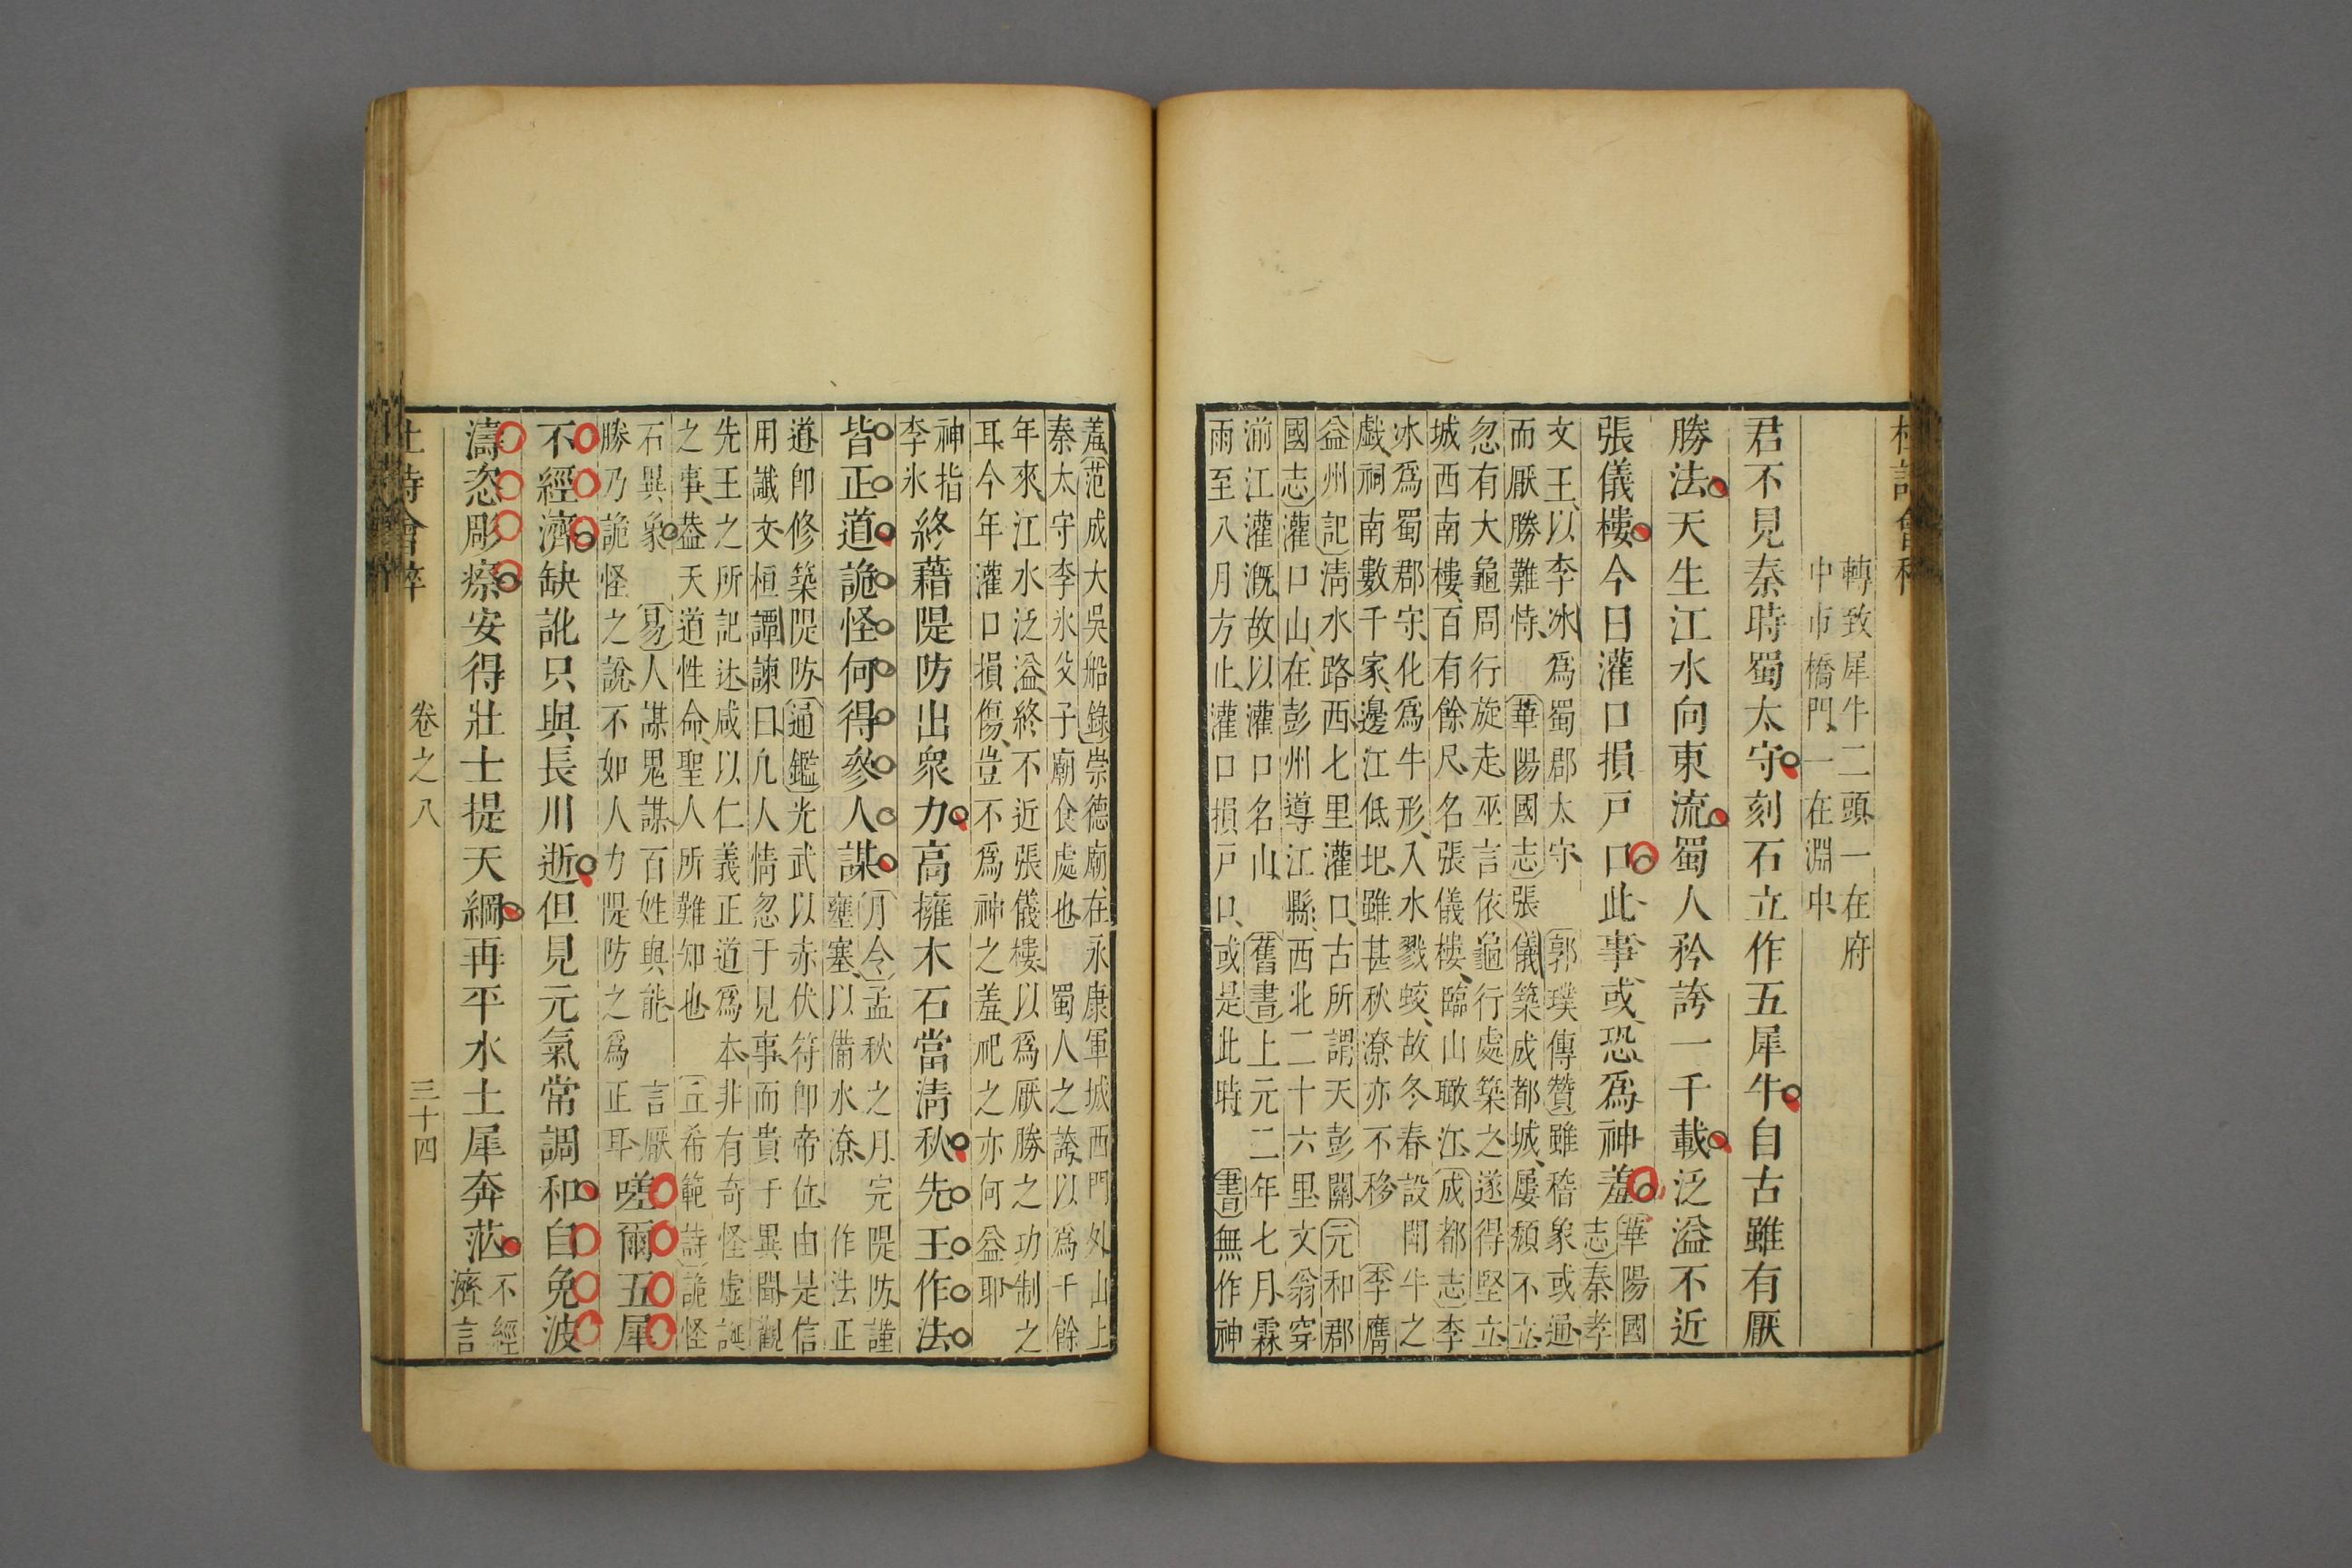 杜詩會粹
轉致犀牛二頭一在府
中市橋門、一在淵中
君不見秦時蜀太守刻石立作五犀牛自古雖有厭
勝法天生江水向東流蜀人矜誇一千載泛溢不近
張儀樓今日灌口損戶口此事或恐爲神羞
華陽國
志秦孝
文王、以李冰爲蜀郡太守 郭璞傳贊雖稽象或通、
而厭勝難恃、華陽國志張儀築成都城、屢頹不立、
忽有大龜周行旋走、巫言依龜行處築之、遂得堅立、
城西南樓、百有餘尺、名張儀樓、臨山瞰江、成都志李
冰爲蜀郡守、化爲牛形、入水戮蛟、故冬春設鬪牛之
戲、祠南數千家、邊江低圯、雖甚秋潦亦不移 李膺
益州記清水路西七里灌口、古所謂天彭關、元和郡
國志灌口山、在彭州導江縣、西北二十六里文翁穿
湔江灌漑、故以灌口名山、舊書上元二年七月霖
雨至八月方止、灌口損戶口、或是此時、書無作神
羞 范成大吳船錄崇德廟、在永康軍城西門外山上
秦太守李氷父子廟食處也 蜀人之誇、以爲千餘
年來、江水泛溢、終不近張儀樓、以爲厭勝之功、制之
耳、今年灌口損傷、豈不爲神之羞、祀之亦何益耶
神指
李氷
終藉隄防出衆力高擁木石當清秋先王作法
皆正道詭怪何得參人謀
月令孟秋之月完隄防、謹
壅塞、以備水潦、作法正
道卽修築隄防 通鑑光武以赤伏符卽帝位由是信
用讖文桓譚諫曰凡人情忽于見事而貴于異聞、觀
先王之所記述、咸以仁義正道爲本、非有奇怪虛誕
之事、葢天道性命、聖人所難知也 丘希範詩詭怪
石異象 易人謀鬼謀、百姓與能 言厭
勝乃詭怪之說、不如人力隄防之爲正耳
嗟爾五犀
不經濟缺訛只與長川逝但見元氣常調和自免波
濤恣彫瘵安得壯士提天綱再平水土犀奔茫
不經
濟言
杜詩會粹
卷之八
三十四